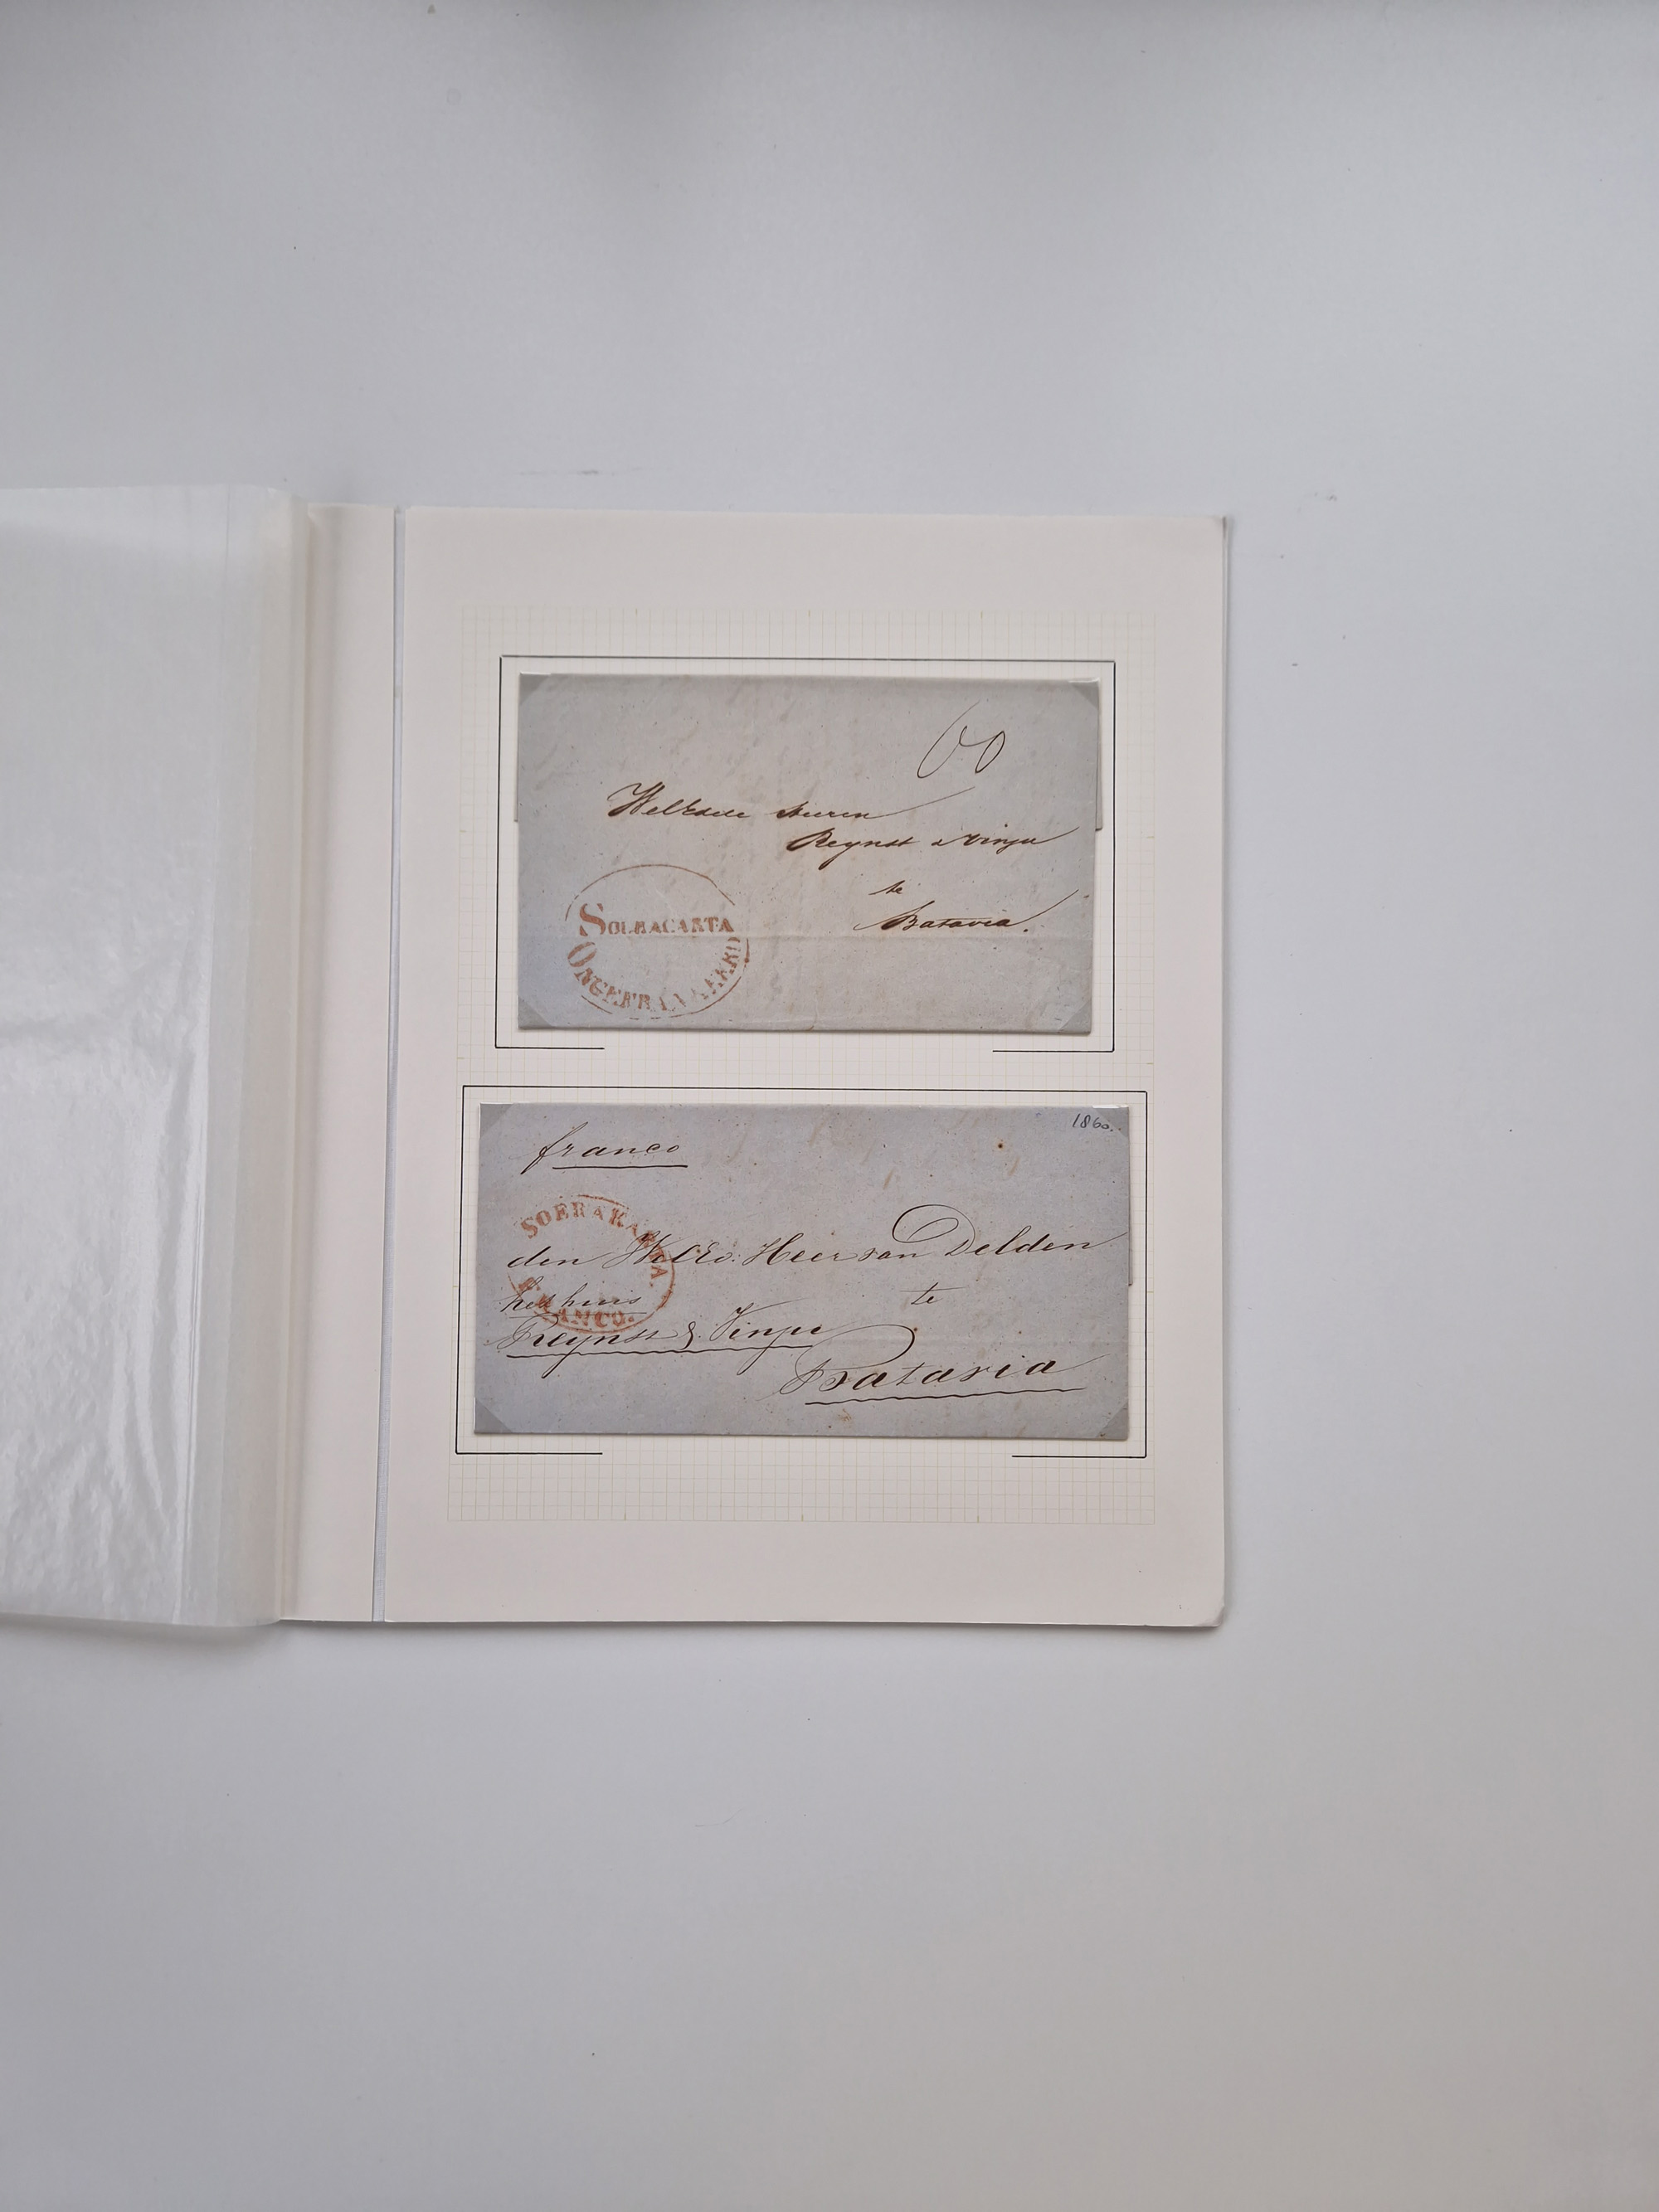 60
WelEdele Heeren
Reynst & Vinju
te
Batavia.
SOERACARTA
ONGEFRANKEERD
1860.
franco
SOERAKARTA.
FRANCO.
den WelEd: Heer van Delden
te
het huis
Reynst & Vinju
Batavia